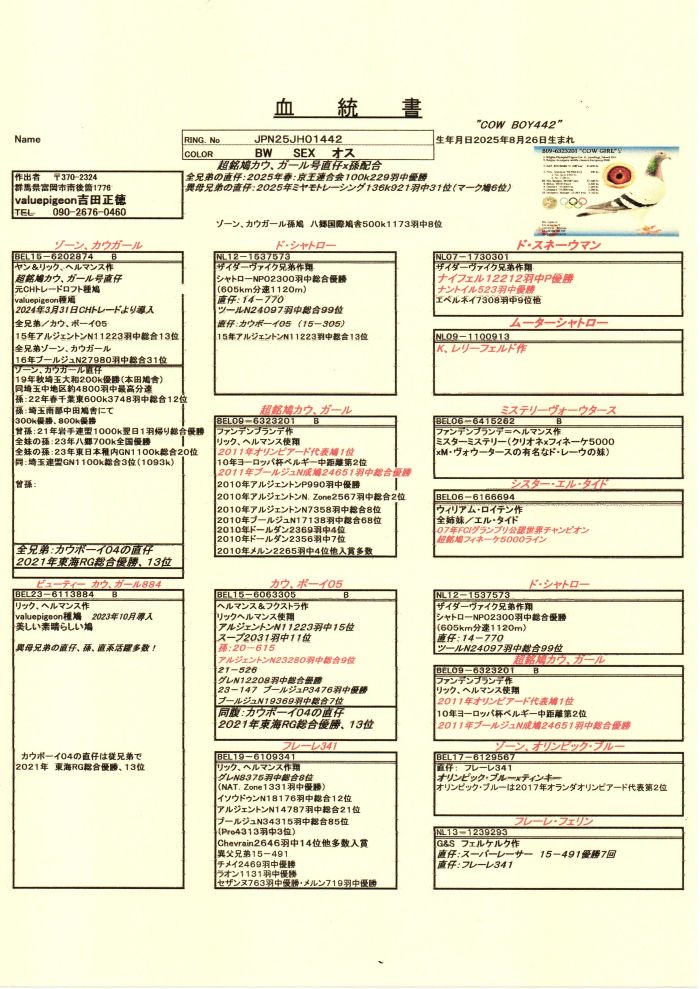 血 統 書
"COW BOY442"
Name
RING. No JPN25JH01442
生年月日2025年8月26日生まれ
COLOR BW SEX オス
超銘鳩カウ、ガール号直仔x孫配合
作出者 〒370-2324
群馬県富岡市南後箇1776
valuepigeon吉田正徳
TEL 090-2676-0460
全兄弟の直仔:2025年春:京王連合会100k229羽中優勝
異母兄弟の直仔:2025年ミヤモトレーシング136k921羽中31位(マーク鳩6位)
ゾーン、カウガール孫鳩 八郷国際鳩舎500k1173羽中8位
B09-6323201 "COW GIRL"
ゾーン、カウガール
BEL15-6202874 B
ヤン&リック、ヘルマンス作
超銘鳩カウ、ガール号直仔
元CHトレードロフト種鳩
valuepigeon種鳩
2024年3月31日CHトレードより導入
全兄弟/カウ、ボーイ05
15年アルジェントンN11223羽中総合13位
全兄弟ゾーン、カウガール
16年ブールジュN27980羽中総合31位
ゾーン、カウガール直仔
19年秋埼玉大和200k優勝(本田鳩舎)
同埼玉中地区約4800羽中最高分速
孫:22年春千葉東600k3748羽中総合12位
孫:埼玉南部中田鳩舎にて
300k優勝、800k優勝
曾孫:21年岩手連盟1000k翌日1羽帰り総合優勝
全妹の孫:23年八郷700k全国優勝
全妹の孫:23年東日本稚内GN1100k総合20位
同:埼玉連盟GN1100k総合3位(1093k)
曾孫:
全兄弟:カウボーイ04の直仔
2021年東海RG総合優勝、13位
ド・シャトロー
NL12-1537573
ザイダーヴァイク兄弟作翔
シャトローNPO2300羽中総合優勝
(605km分速1120m)
直仔:14-770
ツールN24097羽中総合99位
直仔:カウボーイ05 (15-305)
15年アルジェントンN11223羽中総合13位
超銘鳩カウ、ガール
BEL09-6323201 B
ファンデンブランデ作
リック、ヘルマンス使翔
2011年オリンピアード代表鳩1位
10年ヨーロッパ杯ベルギー中距離第2位
2011年ブールジュN成鳩24651羽中総合優勝
2010年アルジェントンP990羽中優勝
2010年アルジェントンN. Zone2567羽中総合2位
2010年アルジェントンN7358羽中総合8位
2010年ブールジュN17138羽中総合68位
2010年ドールダン2369羽中4位
2010年ドールダン2356羽中7位
2010年メルン2265羽中4位他入賞多数
ド・スネーウマン
NL07-1730301
ザイダーヴァイク兄弟作翔
ナイフェル12212羽中P優勝
ナントイル523羽中優勝
エペルネイ7308羽中9位他
ムーターシャトロー
NL09-1100913
K、レリーフェルド作
ミステリーヴォウタース
BEL06-6415262 B
ファンデンブランデ=ヘルマンス作
ミスターミステリー(クリオネxフィネーケ5000
xM・ヴォウータースの有名なド・レーウの妹)
シスター・エル・タイド
BEL06-6166694
ウィリアム・ロイテン作
全姉妹/エル・タイド
07年FCIグランプリ公認世界チャンピオン
超銘鳩フィネーケ5000ライン
ビューティー カウ、ガール884
BEL23-6113884 B
リック、ヘルマンス作
valuepigeon種鳩 2023年10月導入
美しい素晴らしい鳩
異母兄弟の直仔、孫、直系活躍多数!
カウボーイ04の直仔は従兄弟で
2021年 東海RG総合優勝、13位
カウ、ボーイ05
BEL15-6063305 B
ヘルマンス&フクストラ作
リックヘルマンス使翔
アルジェントンN11223羽中15位
スープ2031羽中11位
孫:20-615
アルジェントンN23280羽中総合9位
21-526
グレN12208羽中総合優勝
23-147 ブールジュP3476羽中優勝
ブールジュN19369羽中総合7位
同腹:カウボーイ04の直仔
2021年東海RG総合優勝、13位
フレーレ341
BEL19-6109341
リック、ヘルマンス作翔
グレN8375羽中総合8位
(NAT. Zone1331羽中優勝)
イソウドゥンN18176羽中総合12位
アルジェントンN14787羽中総合21位
ブールジュN34315羽中総合85位
(Pro4313羽中3位)
Chevrain2646羽中14位他多数入賞
異父兄弟15-491
チメイ2469羽中優勝
ラオン1131羽中優勝
セザンヌ763羽中優勝・メルン719羽中優勝
ド・シャトロー
NL12-1537573
ザイダーヴァイク兄弟作翔
シャトローNPO2300羽中総合優勝
(605km分速1120m)
直仔:14-770
ツールN24097羽中総合99位
超銘鳩カウ、ガール
BEL09-6323201 B
ファンデンブランデ作
リック、ヘルマンス使翔
2011年オリンピアード代表鳩1位
10年ヨーロッパ杯ベルギー中距離第2位
2011年ブールジュN成鳩24651羽中総合優勝
ゾーン、オリンピック・ブルー
BEL17-6129567
直仔: フレーレ341
オリンピック・ブルーxティンキー
オリンピック・ブルーは2017年オランダオリンピアード代表第2位
フレーレ・フェリン
NL13-1239293
G&S フェルケルク作
直仔:スーパーレーサー 15-491優勝7回
直仔:フレーレ341